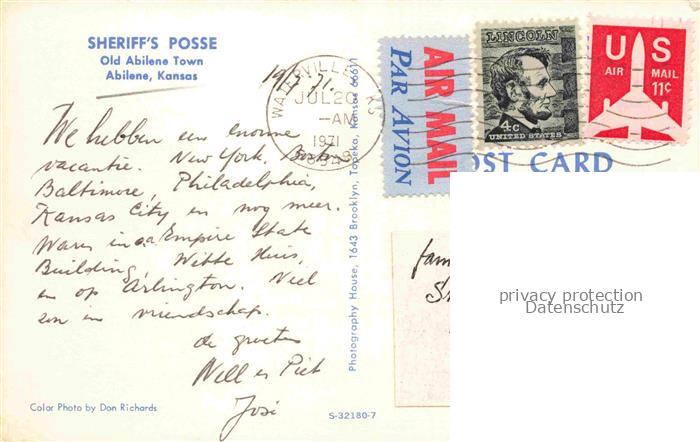 SHERIFF'S POSSE
Old Abilene Town
Abilene, Kansas
19/7 71.
We hebben een enorme
vacantie. New York, Boston
Baltimore, Philadelphia,
Kansas City en nog meer.
Waren in o.a. Empire State
Building, Witte Huis,
en op Arlington. Veel
zon en vriendschap.
de groeten
Nell en Piet
José
Color Photo by Don Richards
S-32180-7
Photography House, 1643 Brooklyn, Topeka, Kansas 66611
WATERVILLE KS
JUL 20
-AM
1971
AIR MAIL
PAR AVION
LINCOLN
4c
UNITED STATES
US
AIR MAIL
11¢
POST CARD
fam
privacy protection
Datenschutz